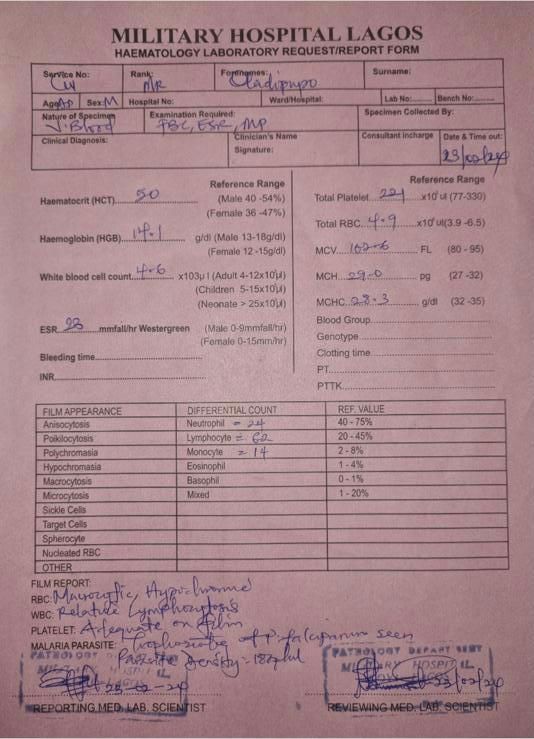 MILITARY HOSPITAL LAGOS
HAEMATOLOGY LABORATORY REQUEST/REPORT FORM
Service No: Rank: MR Forenames: Oladipupo Surname:
Age: AD Sex: M Hospital No: Ward/Hospital: Lab No: Bench No:
Nature of Specimen Examination Required: Specimen Collected By:
V. Blood FBC, ESR, MP
Clinical Diagnosis: Clinician's Name Consultant Incharge Date & Time out:
Signature: 23/02/24
Reference Range
Haematocrit (HCT) 50 (Male 40 -54%)
(Female 36 -47%)
Haemoglobin (HGB) 14.1 g/dl (Male 13-18g/dl)
(Female 12 -15g/dl)
White blood cell count 4.6 x103µl (Adult 4-12x10³µl)
(Children 5-15x10³µl)
(Neonate > 25x10³µl)
ESR 23 mmfall/hr Westergreen (Male 0-9mmfall/hr)
(Female 0-15mm/hr)
Bleeding time
INR
Reference Range
Total Platelet 221 x10³ul (77-330)
Total RBC 4.9 x10⁶ul (3.9 -6.5)
MCV 102.6 FL (80 -95)
MCH 29.0 pg (27 -32)
MCHC 28.3 g/dl (32 -35)
Blood Group
Genotype
Clotting time
PT
PTTK
FILM APPEARANCE DIFFERENTIAL COUNT REF. VALUE
Anisocytosis Neutrophil = 24 40 - 75%
Poikilocytosis Lymphocyte = 62 20 - 45%
Polychromasia Monocyte = 14 2 - 8%
Hypochromasia Eosinophil 1 - 4%
Macrocytosis Basophil 0 - 1%
Microcytosis Mixed 1 - 20%
Sickle Cells
Target Cells
Spherocyte
Nucleated RBC
OTHER
FILM REPORT:
RBC: Macrocytic, Hypochromic
WBC: Relative Lymphocytosis
PLATELET: Adequate on film
MALARIA PARASITE: Trophozoite of P. falciparum seen
Parasite density =
PATHOLOGY DEPARTMENT
MILITARY HOSPITAL
23-02-24 23/02/24
REPORTING MED. LAB. SCIENTIST REVIEWING MED. LAB. SCIENTIST